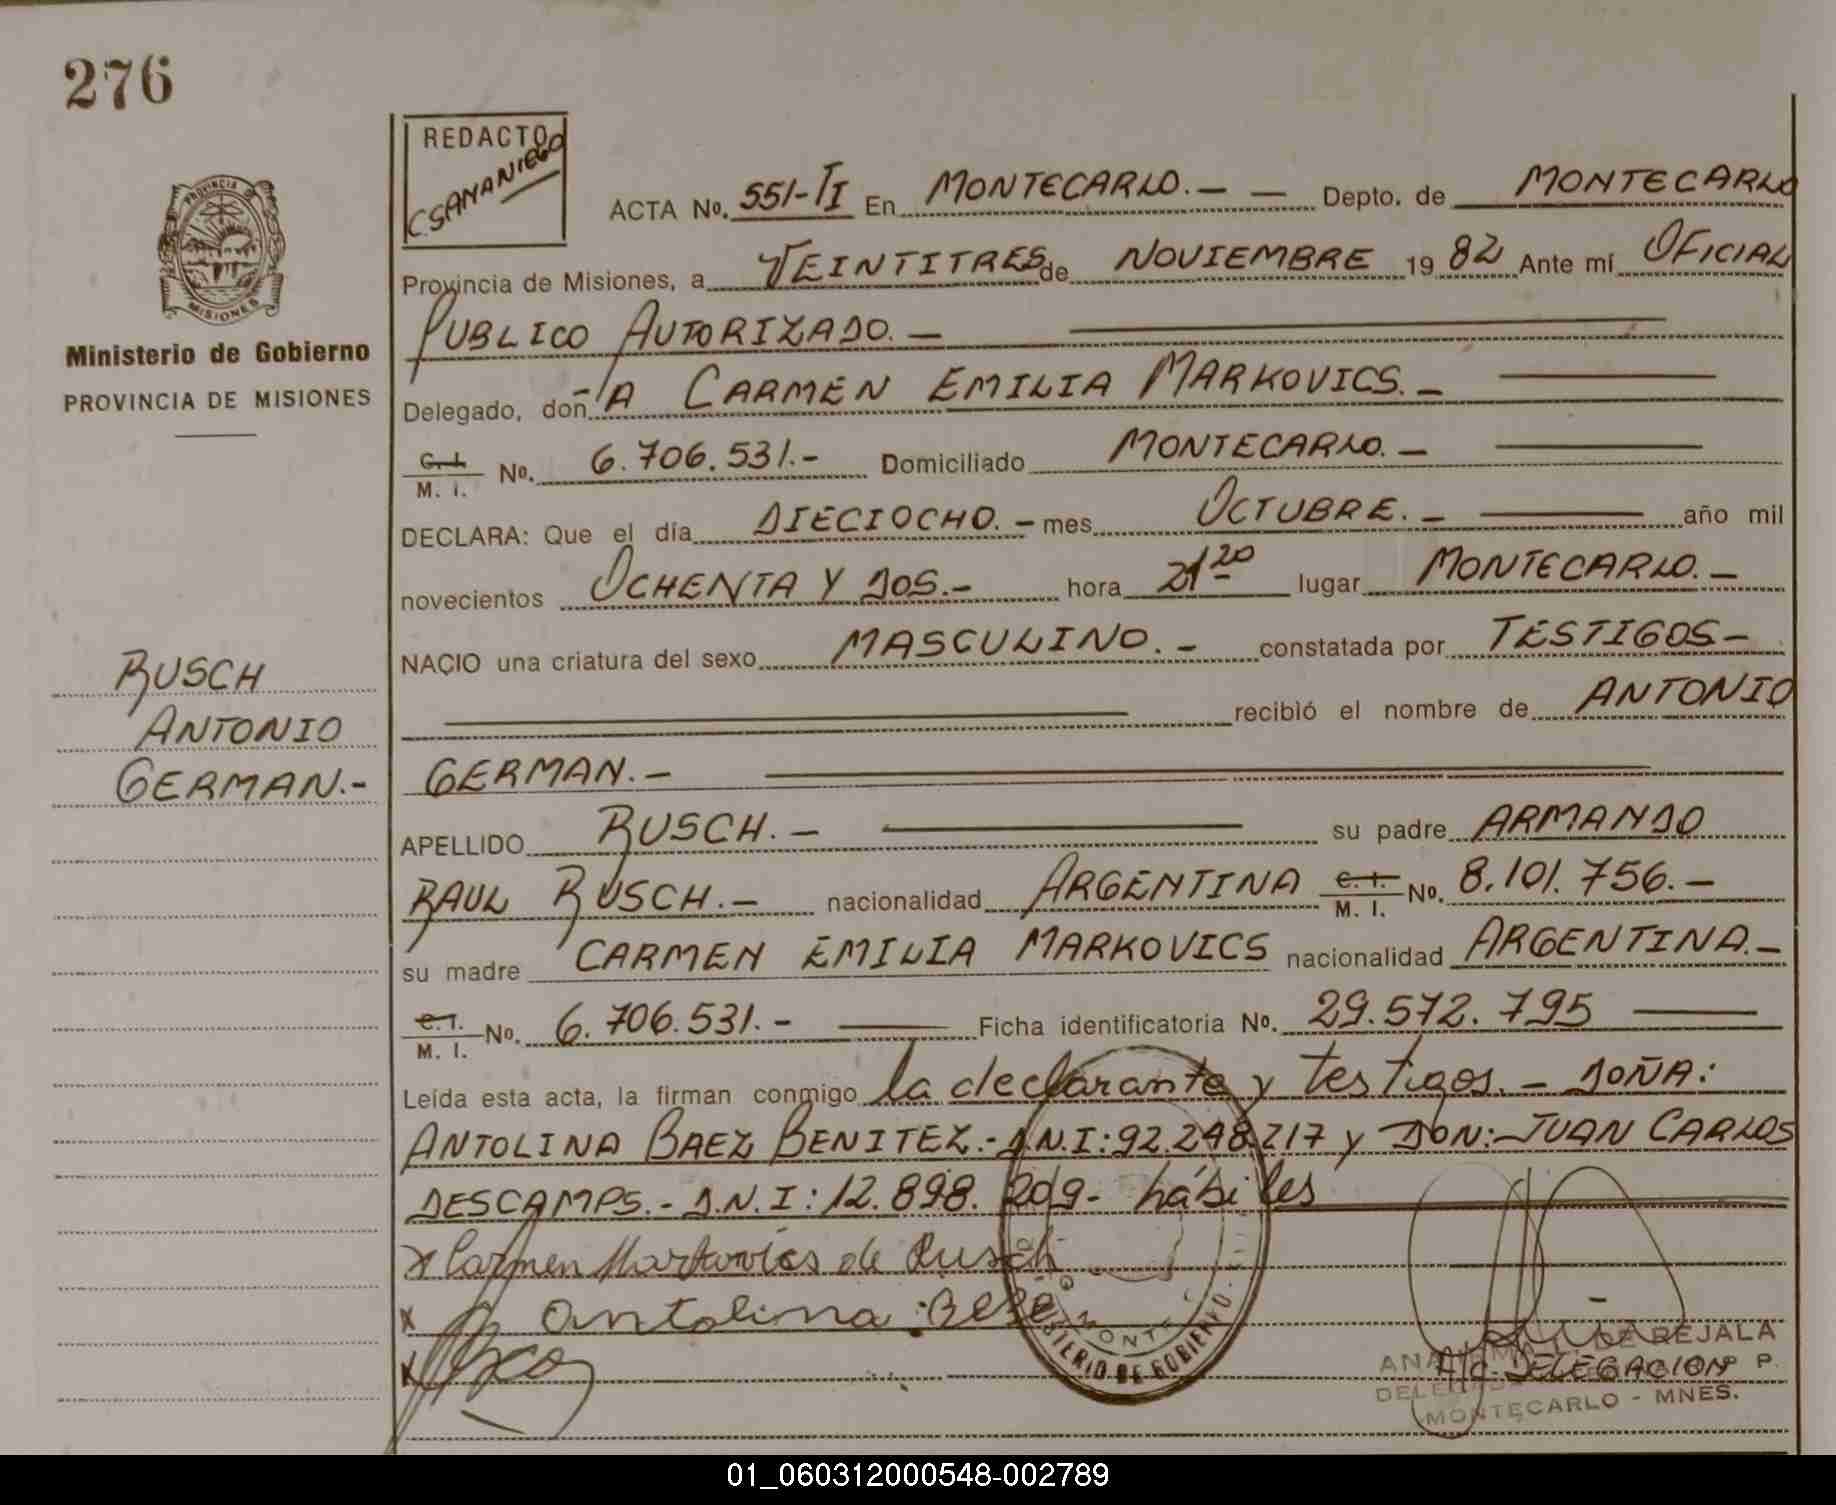 276
REDACTO
C SAMANIEGO
PROVINCIA DE
MISIONES
Ministerio de Gobierno
PROVINCIA DE MISIONES
ACTA No. 551-II En MONTECARLO.- - Depto. de MONTECARLO
Provincia de Misiones, a VEINTITRES de NOVIEMBRE 19 82 Ante mí OFICIAL
PUBLICO AUTORIZADO.-
Delegado, don -/A CARMEN EMILIA MARKOVICS.-
C. I. / M. I. No. 6.706.531.- Domiciliado MONTECARLO.-
DECLARA: Que el día DIECIOCHO.- mes OCTUBRE.- año mil
novecientos OCHENTA Y DOS.- hora 21 20 lugar MONTECARLO.-
NACIO una criatura del sexo MASCULINO.- constatada por TESTIGOS-
recibió el nombre de ANTONIO
GERMAN.-
RUSCH
ANTONIO
GERMAN.-
APELLIDO RUSCH.- su padre ARMANDO
RAUL RUSCH.- nacionalidad ARGENTINA C. I. / M. I. No. 8.101.756.-
su madre CARMEN EMILIA MARKOVICS nacionalidad ARGENTINA.-
C. I. / M. I. No. 6.706.531.- Ficha identificatoria No. 29.572.795
Leída esta acta, la firman conmigo la declarante y testigos.- DOÑA:
ANTOLINA BAEZ BENITEZ.- D.N.I: 92.248.217 y DON:- JUAN CARLOS
DESCAMPS.- D.N.I: 12.898.209- hábiles
x Carmen Markovics de Rusch
x Antolina
x
MINISTERIO DE GOBIERNO
DE REJALA
A/C DELEGACION
MONTECARLO - MNES.
01_060312000548-002789